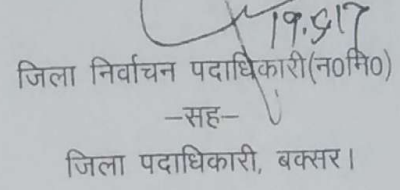 19.5.17
जिला निर्वाचन पदाधिकारी(न०मि०)
–सह–
जिला पदाधिकारी, बक्सर।